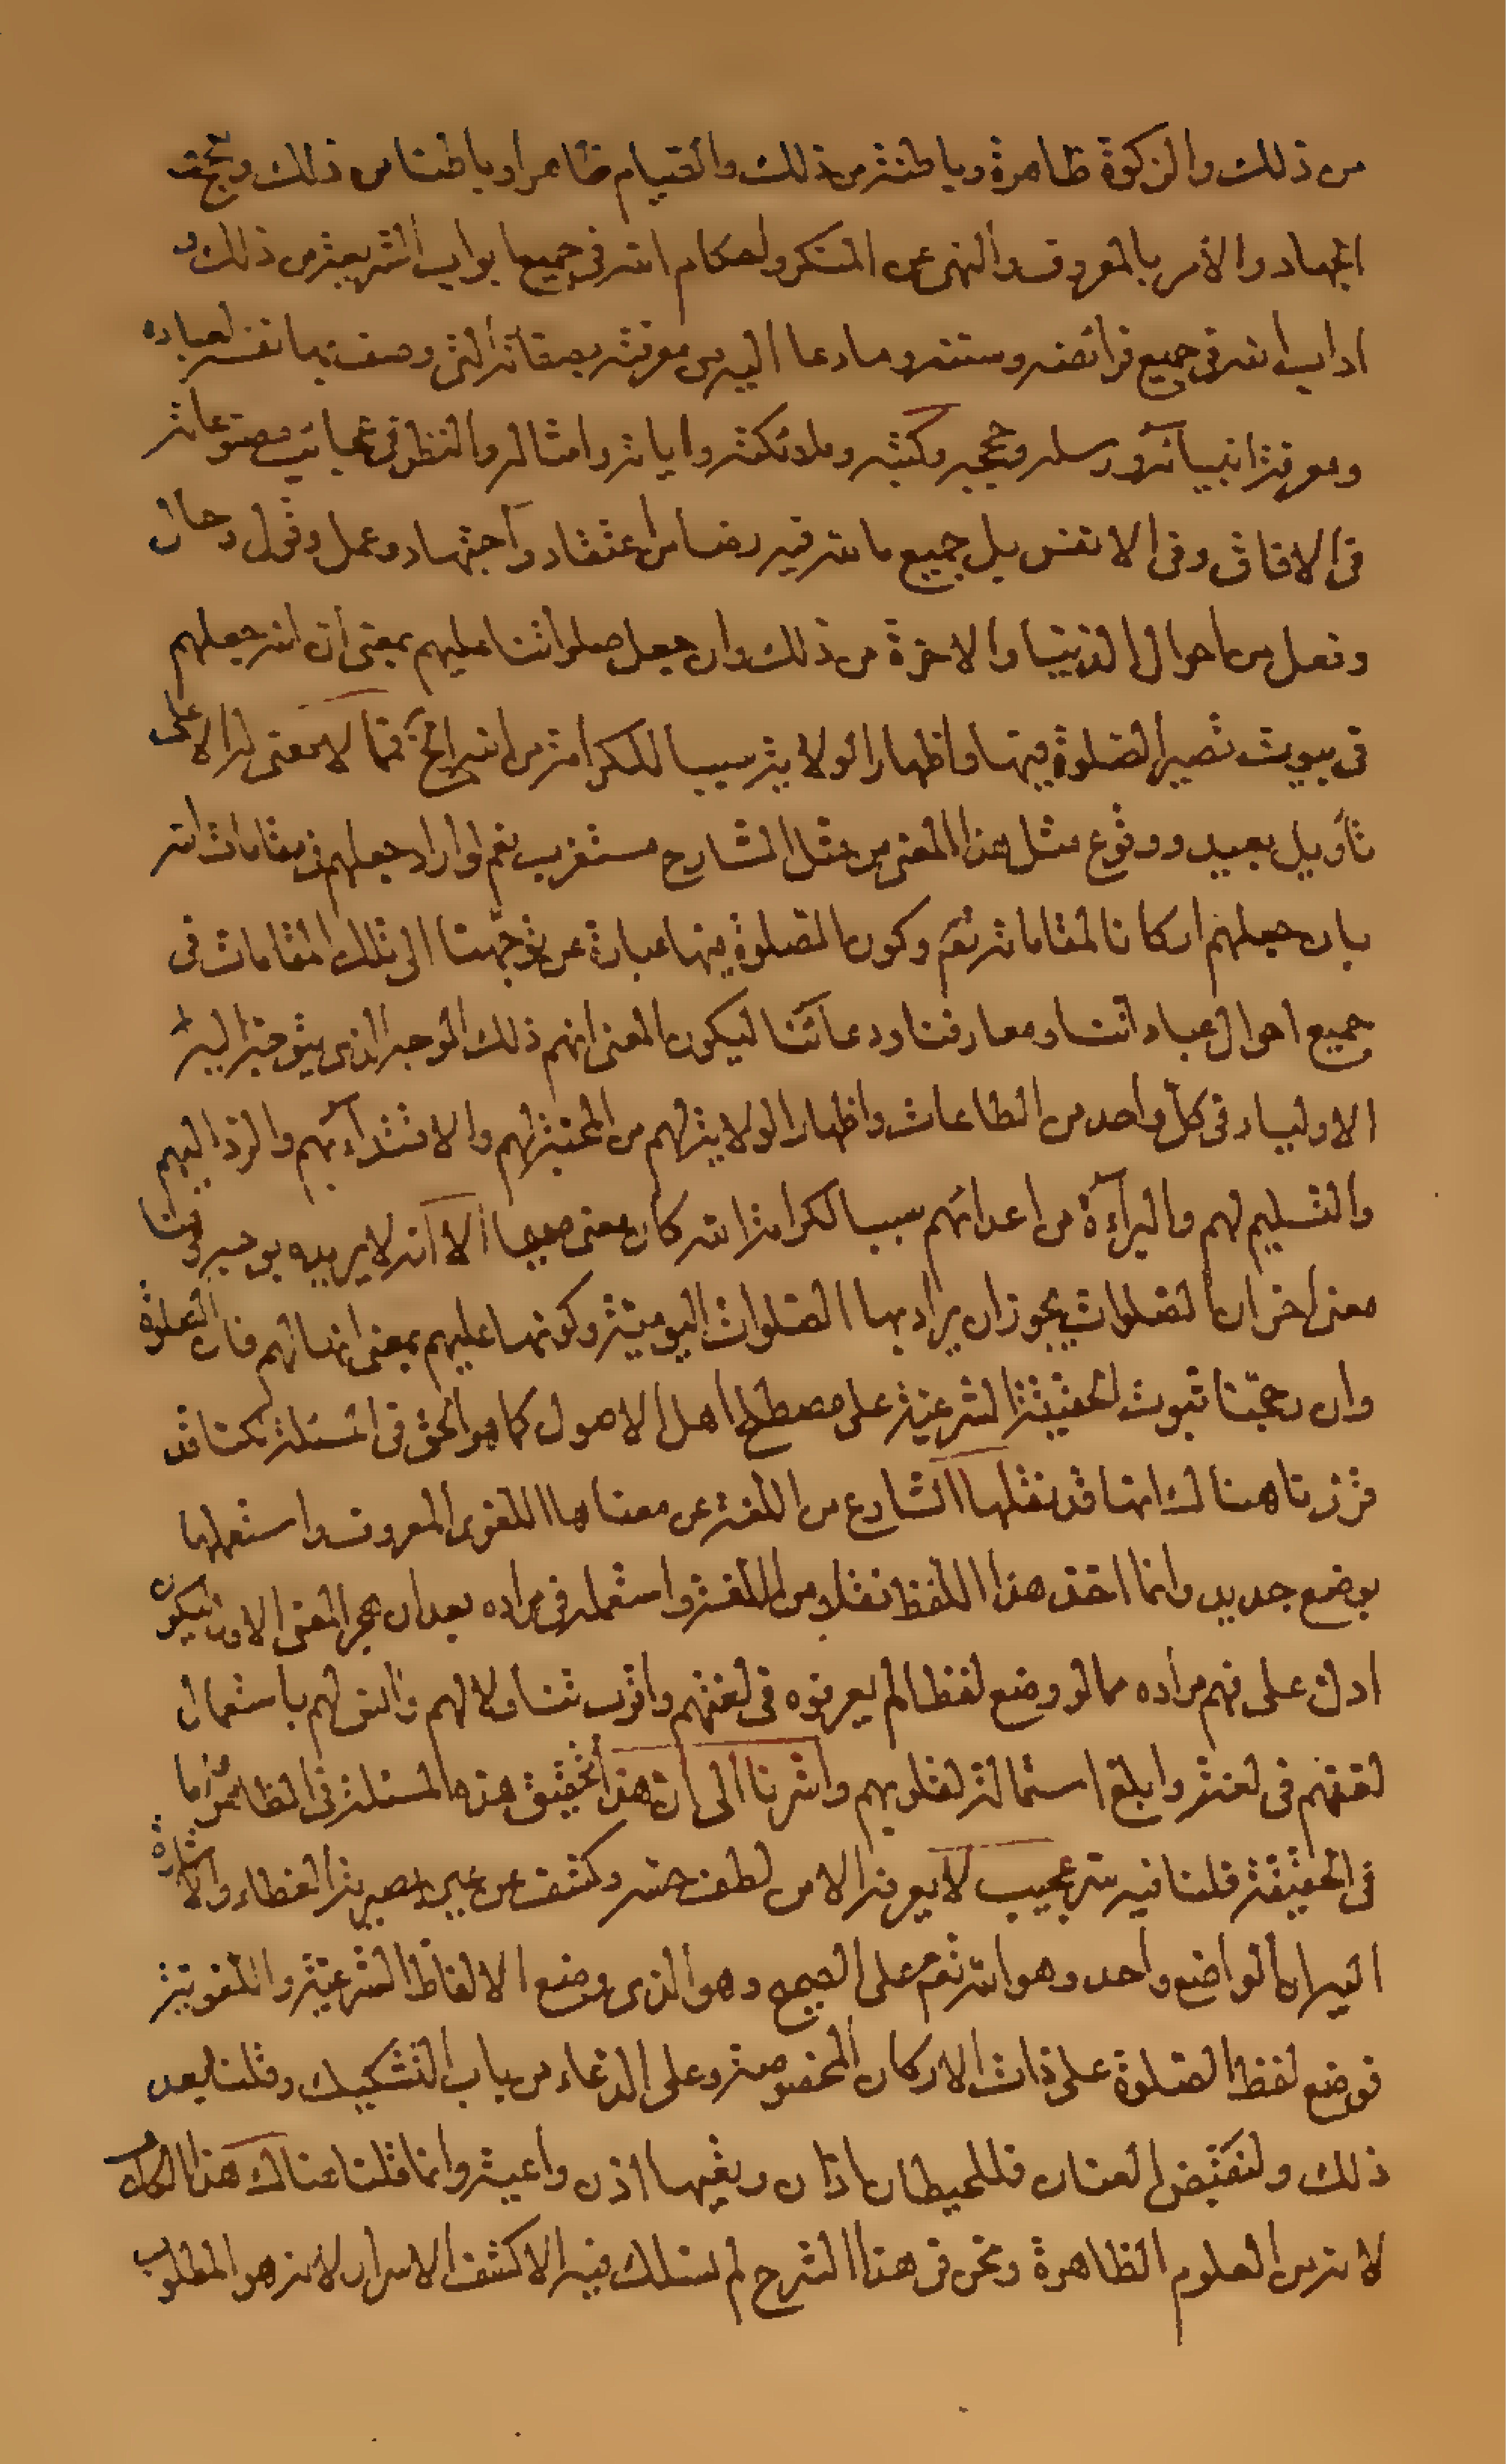 من ذلك والزكوة ظاهرة وباطنة من ذلك والقيام ظاهرا وباطنا من ذلك والحج و
الجهاد والأمر بالمعروف والنهى عن المنكر واحكام الله فى جميع ابواب الشريعة من ذلك و
اداب الله فى جميع فرائضه وسننه وما دعا اليه من معرفته بصفاته التى وصف بها نفسه لعباده
ومعرفة انبيائه ورسله وحججه وكتبه وملائكته واياته وامثاله والنظر فى عجائب مصنوعاته
فى الافاق وفى الانفس بل جميع ما لله فيه رضا من اعتقاد واجتهاد وعمل وقول وحال
وفعل من احوال الدنيا والاخرة من ذلك وان جعل صلواتنا عليهم بمعنى ان الله جعلهم
فى بيوت تصير الصلوة فيها واظهار الولاية سببا للكرامة من الله الخ فمما لا معنى له الا على
تأويل بعيد ووقوع مثل هذا المعنى من مثل الشارح مستغرب نعم لو اراد جعلهم فى مقامات الله
بان جعلهم اركانا لمقاماته تعم وكون الصلوة فيها عبارة عن توجهنا الى تلك المقامات فى
جميع احوال عباداتنا ومعارفنا ودعائنا ليكون المعنى انهم ذلك الوجه الذى يتوجه اليه
الاولياء فى كل واحد من الطاعات واظهار الولاية لهم من المحبة لهم والاقتداء بهم والرد اليهم
والتسليم لهم والبراءة من اعدائهم سببا لكرامة الله كان معنى صحيحا الا انه لا يريده بوجه وهنا
معنى اخر ان الصلوات يجوز ان يراد بها الصلوات اليومية وكونها عليهم بمعنى انها لهم فان الصلوة
وان رجحنا ثبوت الحقيقة الشرعية على مصطلح اهل الاصول كما هو الحق فى المسئلة لكنا قد
قررنا هنالك انها قد نقلها الشارع من اللغة عن معناها اللغوى المعروف واستعملها
بوضع جديد وانما اخذ هذا اللفظ نقلا من اللغة واستعمله فى مراده بعد ان هجر المعنى الاول ليكون
ادل على فهم مراده مما لو وضع لفظا لم يعرفوه فى لغتهم واقرب تناولا لهم والىق لهم باستعمال
لغتهم فى لغته وابلغ استمالة لقلوبهم واشرنا الى ان هذا تحقيق هذه المسئلة فى الظاهر واما
فى الحقيقة قلنا فيه سر عجيب لا يعرفه الا من لطف حسه وكشف عن عين بصيرته الغطاء والاشارة
اليه ان الواضع واحد وهو الله تعم على الصحيح وهو الذى وضع الالفاظ الشرعية واللغوية
فوضع لفظ الصلوة على ذات الاركان المخصوصة وعلى الدعاء من باب التشكيك وقلنا بعد
ذلك ولنقبض العنان فللحيطان اذان وتعيها اذن واعية وانما قلنا هناك هذا الكلام
لانه من العلوم الظاهرة ونحن فى هذا الشرح لم نسلك فيه الا كشف الاسرار لانه هو المطلوب